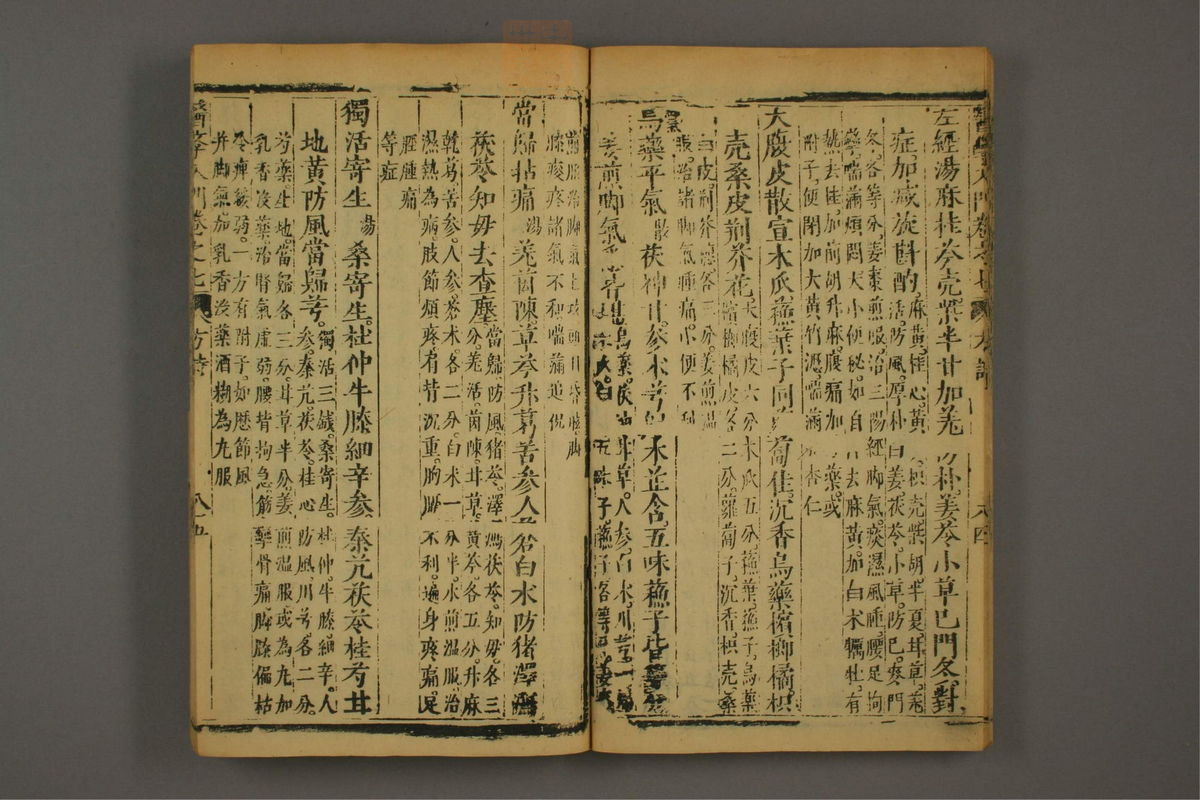 左經湯麻桂芩壳柴半甘加羌 朴姜苓小草巳門冬對
症加减旋斟酌 麻黃桂心黃 枳壳柴胡半夏甘草羌
活防風厚朴 白姜茯苓小草防巳麥門
冬各等分姜棗煎服治三陽 經脚氣痰濕風腫腰足拘
攣喘滿煩悶大小便秘如自 去麻黃加白术犡牡有
熱去桂加前胡升麻腹痛加 藥或
附子便閉加大黃竹瀝喘滿 杏仁
大腹皮散宣木瓜蘓葉子同 蔔佳沉香烏藥檳榔橘枳
壳桑皮荊芥花 大腹皮六分 木瓜五分蘓葉蘓子烏藥
檳榔橘皮各 二分蘿蔔子沉香枳壳桑
白皮荊芥穗各三分姜煎温
服治諸脚氣腫痛小便不利
烏藥平氣散茯神甘參术芎 木芷含五味蘓子皆
姜煎脚氣 烏藥茯神 甘草人參白术川芎
木瓜白 五味子蘓子各等
煎服治脚氣上攻頭目昏眩脚
膝痠疼諸氣不和喘滿迫促
當歸拈痛湯羌茵陳草芩升葛苦參人 名白术防猪澤
茯苓知母去查塵 當歸防風猪苓澤 瀉茯苓知母各三
分羌活茵陳甘草 黃芩各五分升麻
乾葛苦參人參蒼术各二分白术一 分半水煎温服治
濕熱為病肢節煩疼肩背沉重胸膈 不利遍身疼痛足
脛腫痛
等症
獨活寄生湯桑寄生杜仲牛膝細辛參 秦艽茯苓桂芍甘
地黃防風當歸芎 獨活三錢桑寄生 杜仲牛膝細辛人
參秦艽茯苓桂心 防風川芎各二分
芍藥生地當歸各三分甘草半分姜 煎温服或為九加
乳香沒藥治腎氣虛弱腰背拘急筋 攣骨痛脚膝偏枯
冷痺緩弱一方有附子如歷節風
并脚氣加乳香沒藥酒糊為丸服
醫學入門卷之七 方詩 八十五